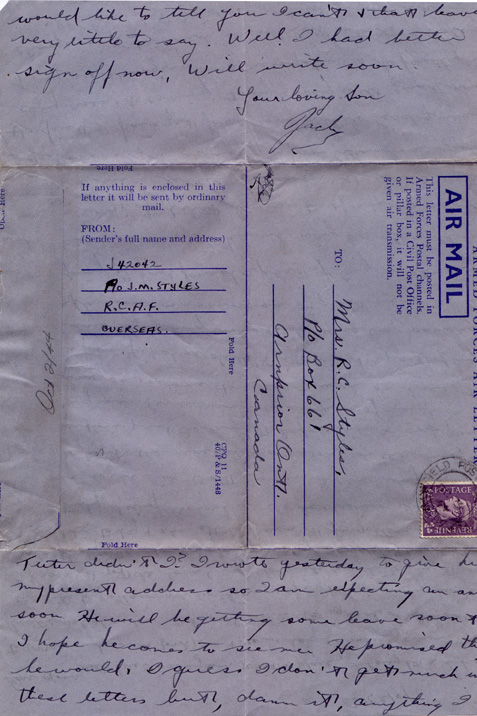 would like to tell you I can't & that leave
very little to say. Well I had better
sign off now, Will write soon.
Your loving Son
Jack
Fold Here
Open Here
If anything is enclosed in this
letter it will be sent by ordinary
mail.
FROM:
(Sender's full name and address)
J42042
P/O J.M. STYLES
R.C.A.F.
OVERSEAS.
Fold Here
C̶
40/P & S/1448
ARMED FORCES AIR LETTER
AIR MAIL
This letter must be posted in
Armed Forces Postal channels.
If posted in a Civil Post Office
or pillar box, it will not be
given air transmission.
TO:
Mrs R.C. Styles,
P/o Box 661
Arnprior Ont.
Canada
FIELD POS
POSTAGE
REVENUE
Fold Here
Teeter didn't I? I wrote yesterday to give hi
my present address so I am expecting an an
soon He will be getting some leave soon
I hope he comes to see me. He promised th
he would, I guess I don't get much in
these letters but, damn it, anything I